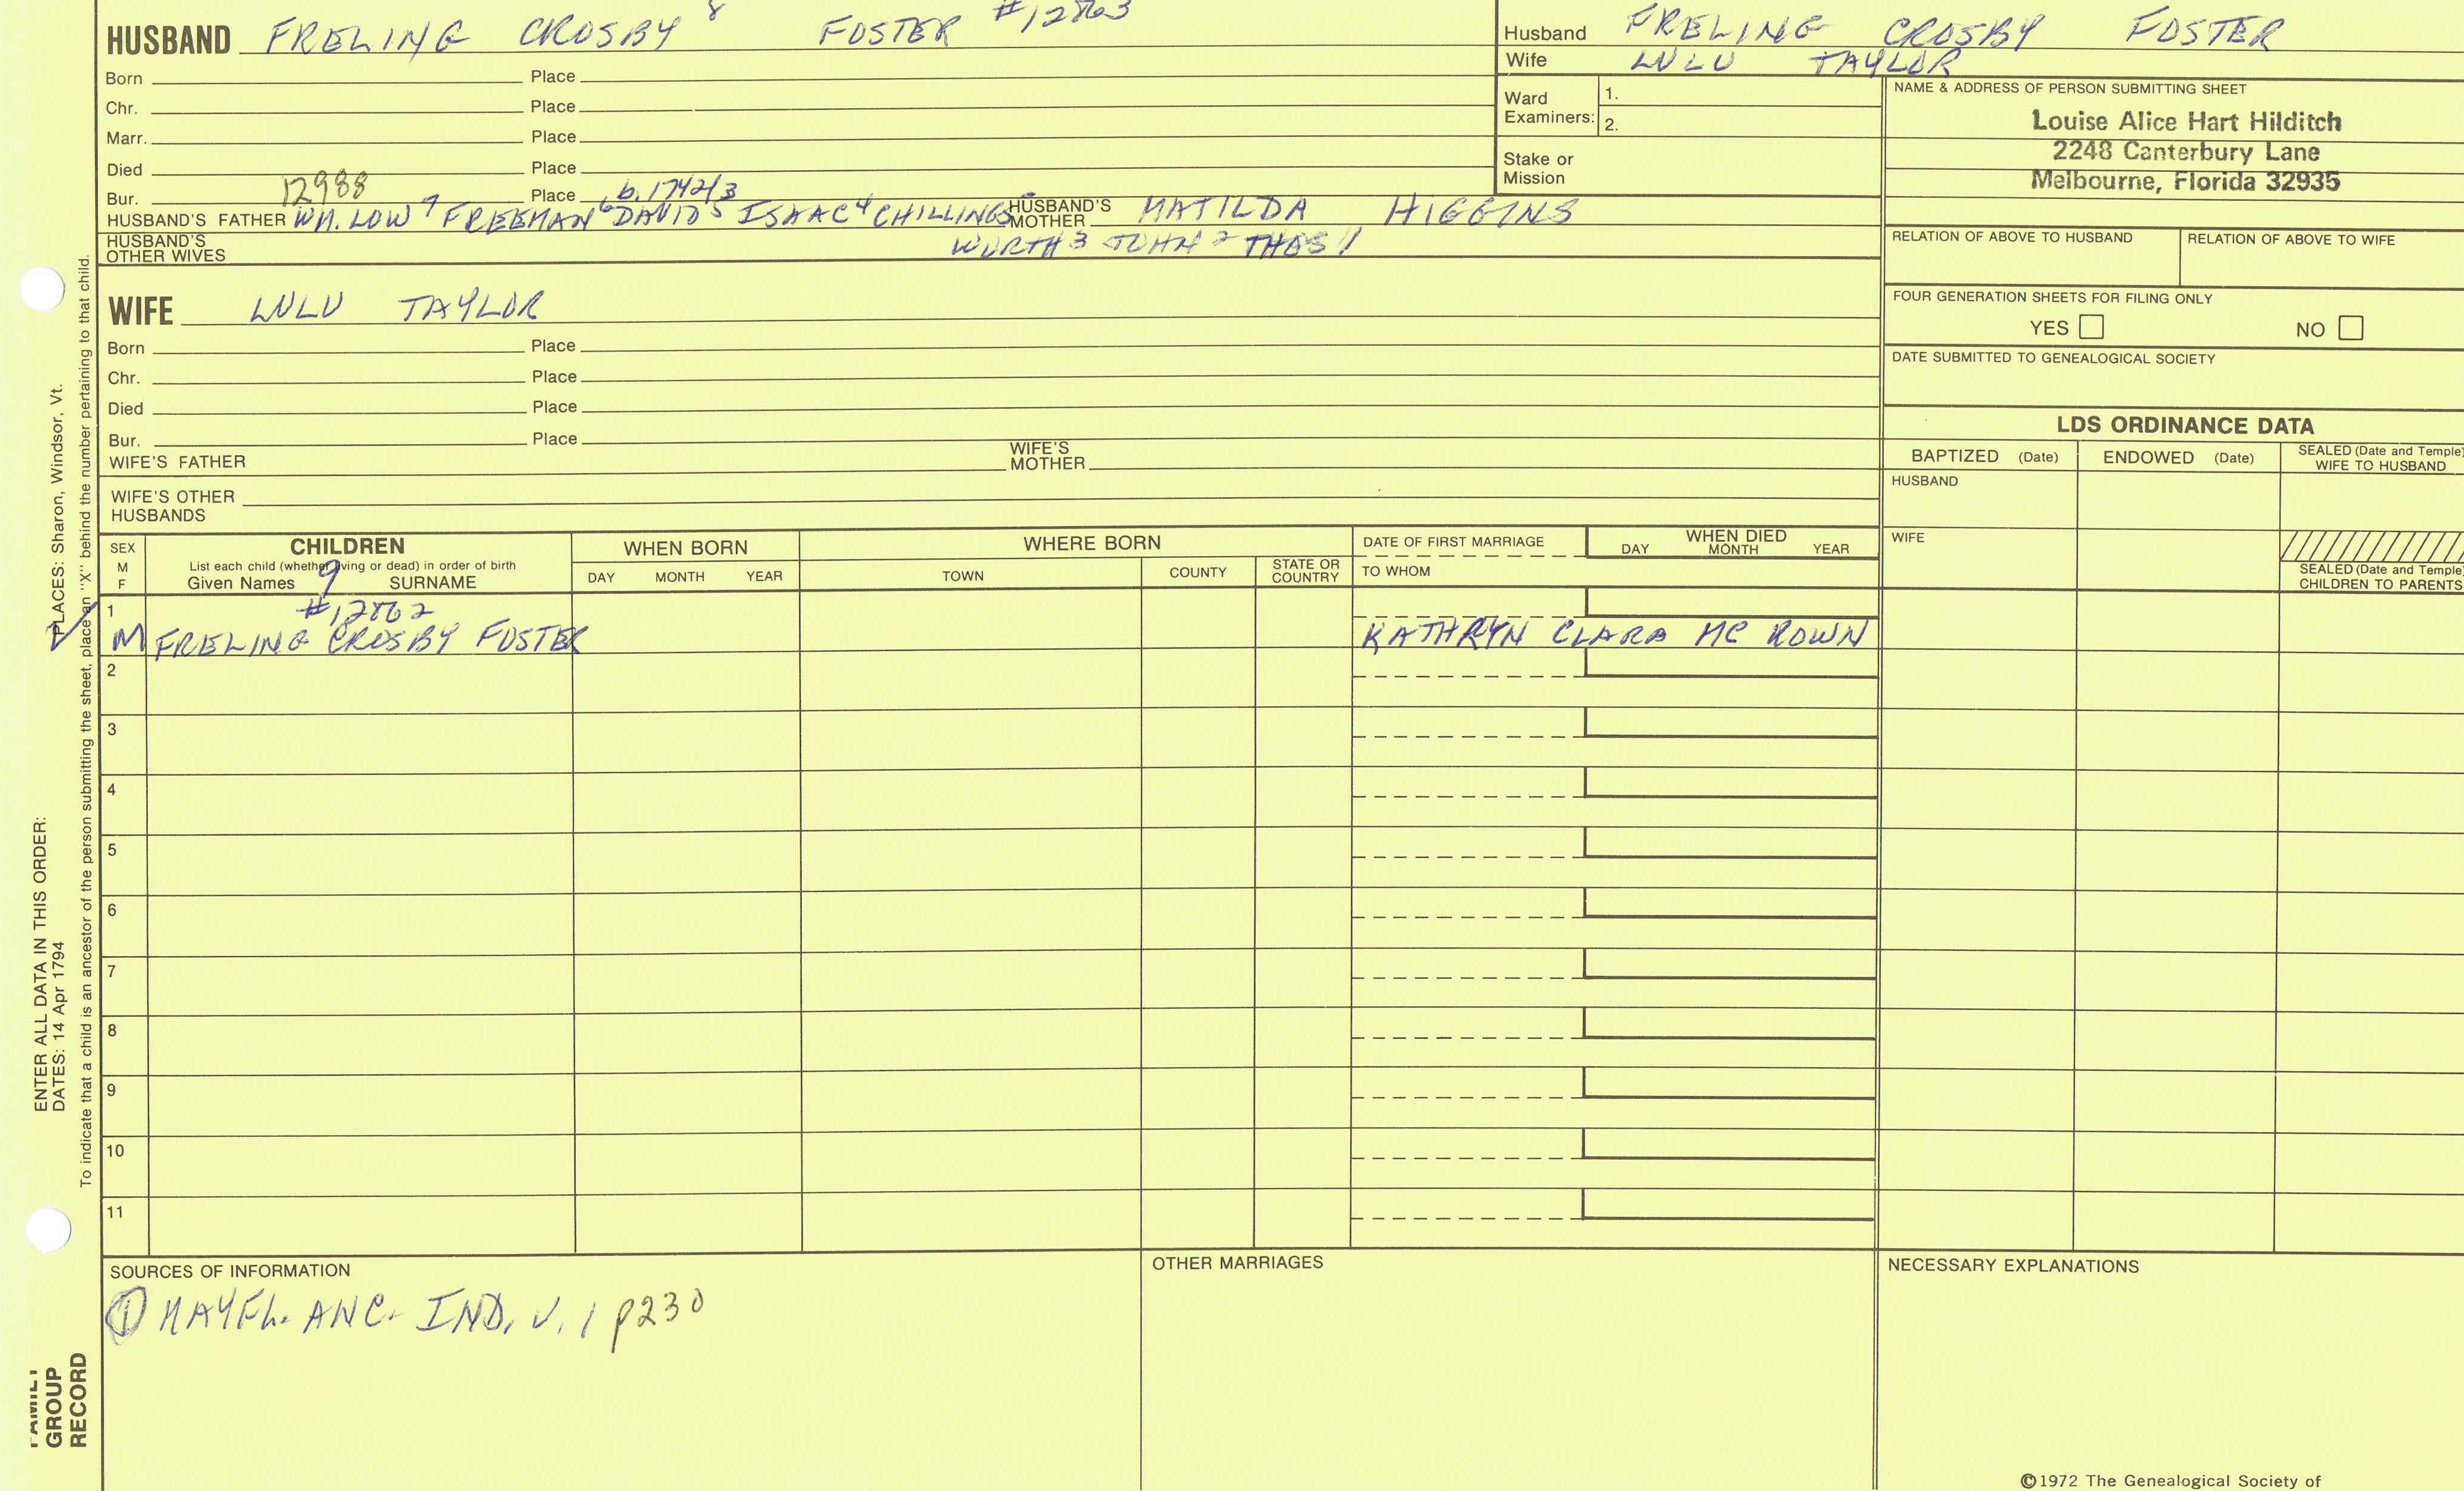 HUSBAND FRELING CROSBY 8 FOSTER #12863
Born Place
Chr. Place
Marr. Place
Died Place
Bur. 12988 Place b. 1742/3
HUSBAND'S FATHER WM. LOW 7 FREEMAN 6 DAVID 5 ISAAC 4 CHILLINGS HUSBAND'S MOTHER MATILDA HIGGINS
HUSBAND'S OTHER WIVES WORTH 3 JOHN 2 THOS 1
WIFE LULU TAYLOR
Born Place
Chr. Place
Died Place
Bur. Place
WIFE'S FATHER WIFE'S MOTHER
WIFE'S OTHER HUSBANDS
Husband FRELING CROSBY FOSTER
Wife LULU TAYLOR
Ward Examiners: 1.
2.
Stake or Mission
NAME & ADDRESS OF PERSON SUBMITTING SHEET
Louise Alice Hart Hilditch
2248 Canterbury Lane
Melbourne, Florida 32935
RELATION OF ABOVE TO HUSBAND RELATION OF ABOVE TO WIFE
FOUR GENERATION SHEETS FOR FILING ONLY
YES NO
DATE SUBMITTED TO GENEALOGICAL SOCIETY
LDS ORDINANCE DATA
BAPTIZED (Date) ENDOWED (Date) SEALED (Date and Temple) WIFE TO HUSBAND
HUSBAND
WIFE
SEALED (Date and Temple) CHILDREN TO PARENTS
SEX M F
CHILDREN
List each child (whether living or dead) in order of birth
Given Names 9 SURNAME
WHEN BORN
DAY MONTH YEAR
WHERE BORN
TOWN COUNTY STATE OR COUNTRY
DATE OF FIRST MARRIAGE
TO WHOM
WHEN DIED
DAY MONTH YEAR
1 #12862
M FRELING CROSBY FOSTER KATHRYN CLARA MC ROWN
2
3
4
5
6
7
8
9
10
11
SOURCES OF INFORMATION
1 MAYFL. ANC. IND. V. 1 p230
OTHER MARRIAGES
NECESSARY EXPLANATIONS
©1972 The Genealogical Society of
ENTER ALL DATA IN THIS ORDER:
DATES: 14 Apr 1794 PLACES: Sharon, Windsor, Vt.
To indicate that a child is an ancestor of the person submitting the sheet, place an "X" behind the number pertaining to that child.
FAMILY
GROUP
RECORD